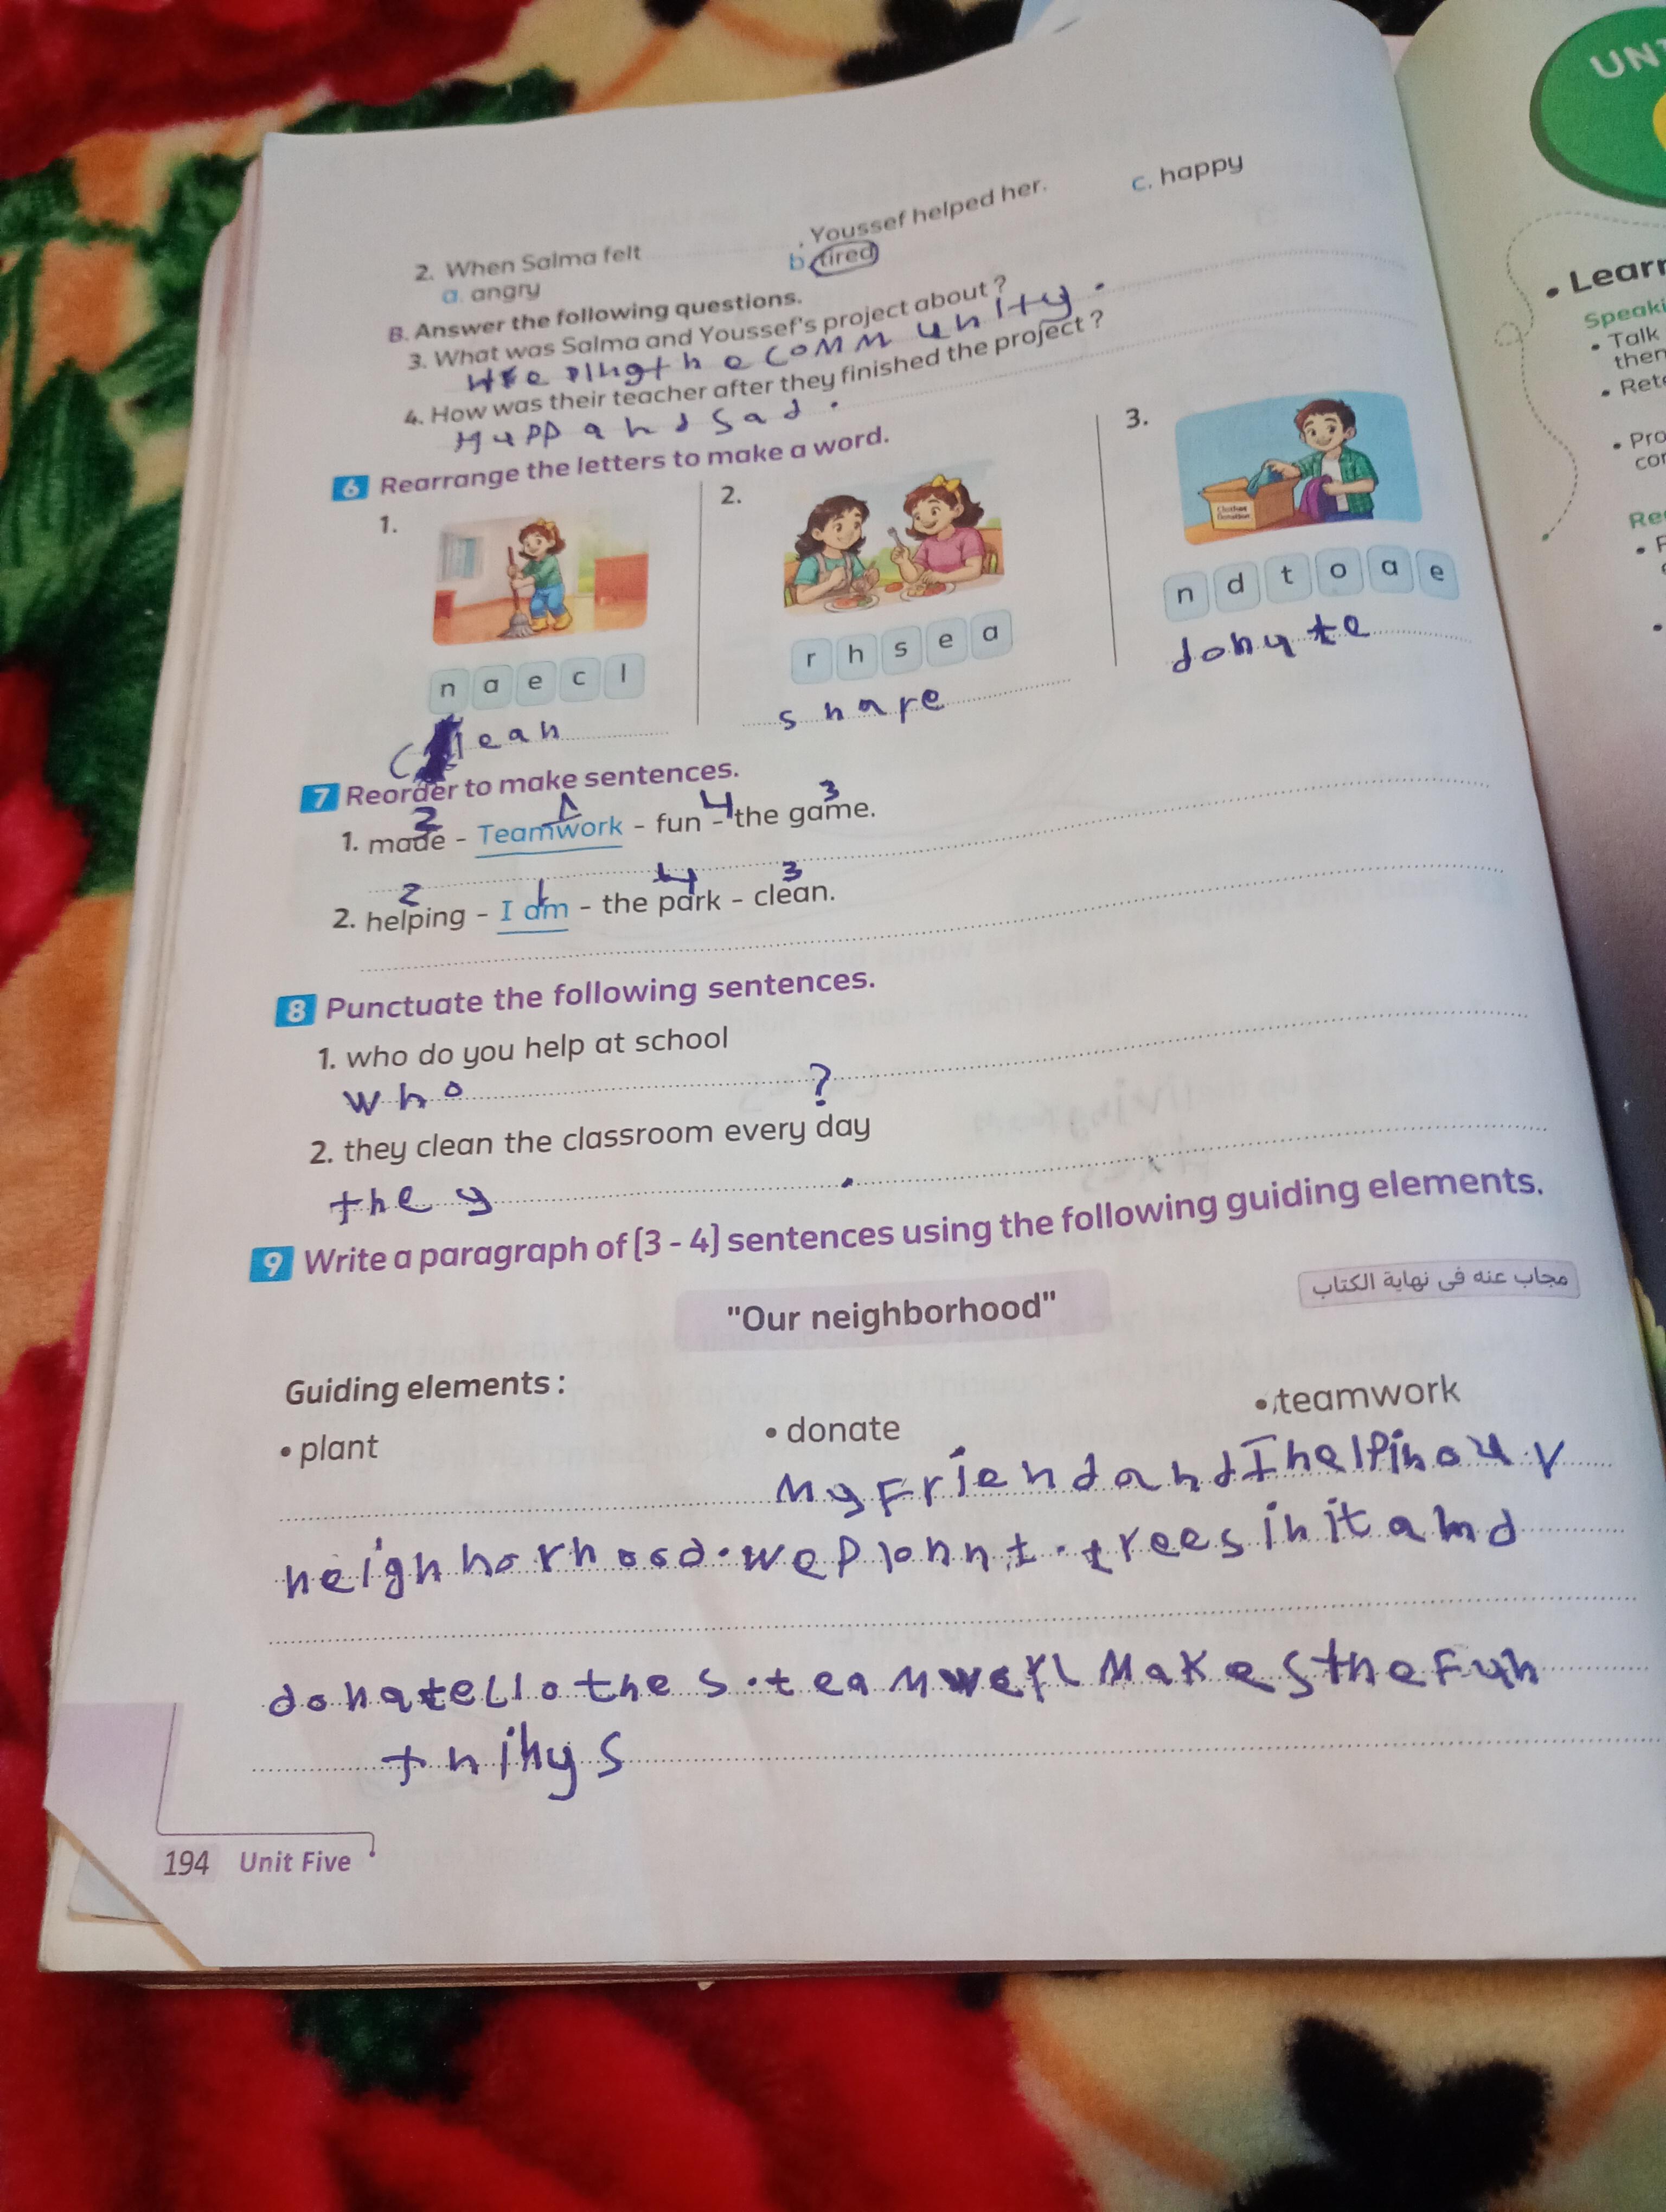 2. When Salma felt ............ , Youssef helped her.
a. angry b. tired c. happy
B. Answer the following questions.
3. What was Salma and Youssef's project about ?
the community.
4. How was their teacher after they finished the project ?
and sad.
6 Rearrange the letters to make a word.
1. 2. 3.
Clothes Donation
n a e c l
clean
r h s e a
share
n d t o a e
donate
7 Reorder to make sentences.
2 1 4 3
1. made - Teamwork - fun - the game.
2 1 4 3
2. helping - I am - the park - clean.
8 Punctuate the following sentences.
1. who do you help at school
who ?
2. they clean the classroom every day
they .
9 Write a paragraph of (3 - 4) sentences using the following guiding elements.
مجاب عنه فى نهاية الكتاب
"Our neighborhood"
Guiding elements :
• plant • donate • teamwork
My Friend and I help in our
neighhorhood. we plonnt. trees in it amd
donate clothes. makes the Fun
thihys
194 Unit Five
UN
• Learn
Speaki
• Talk
then
• Rete
• Pro
cor
Re